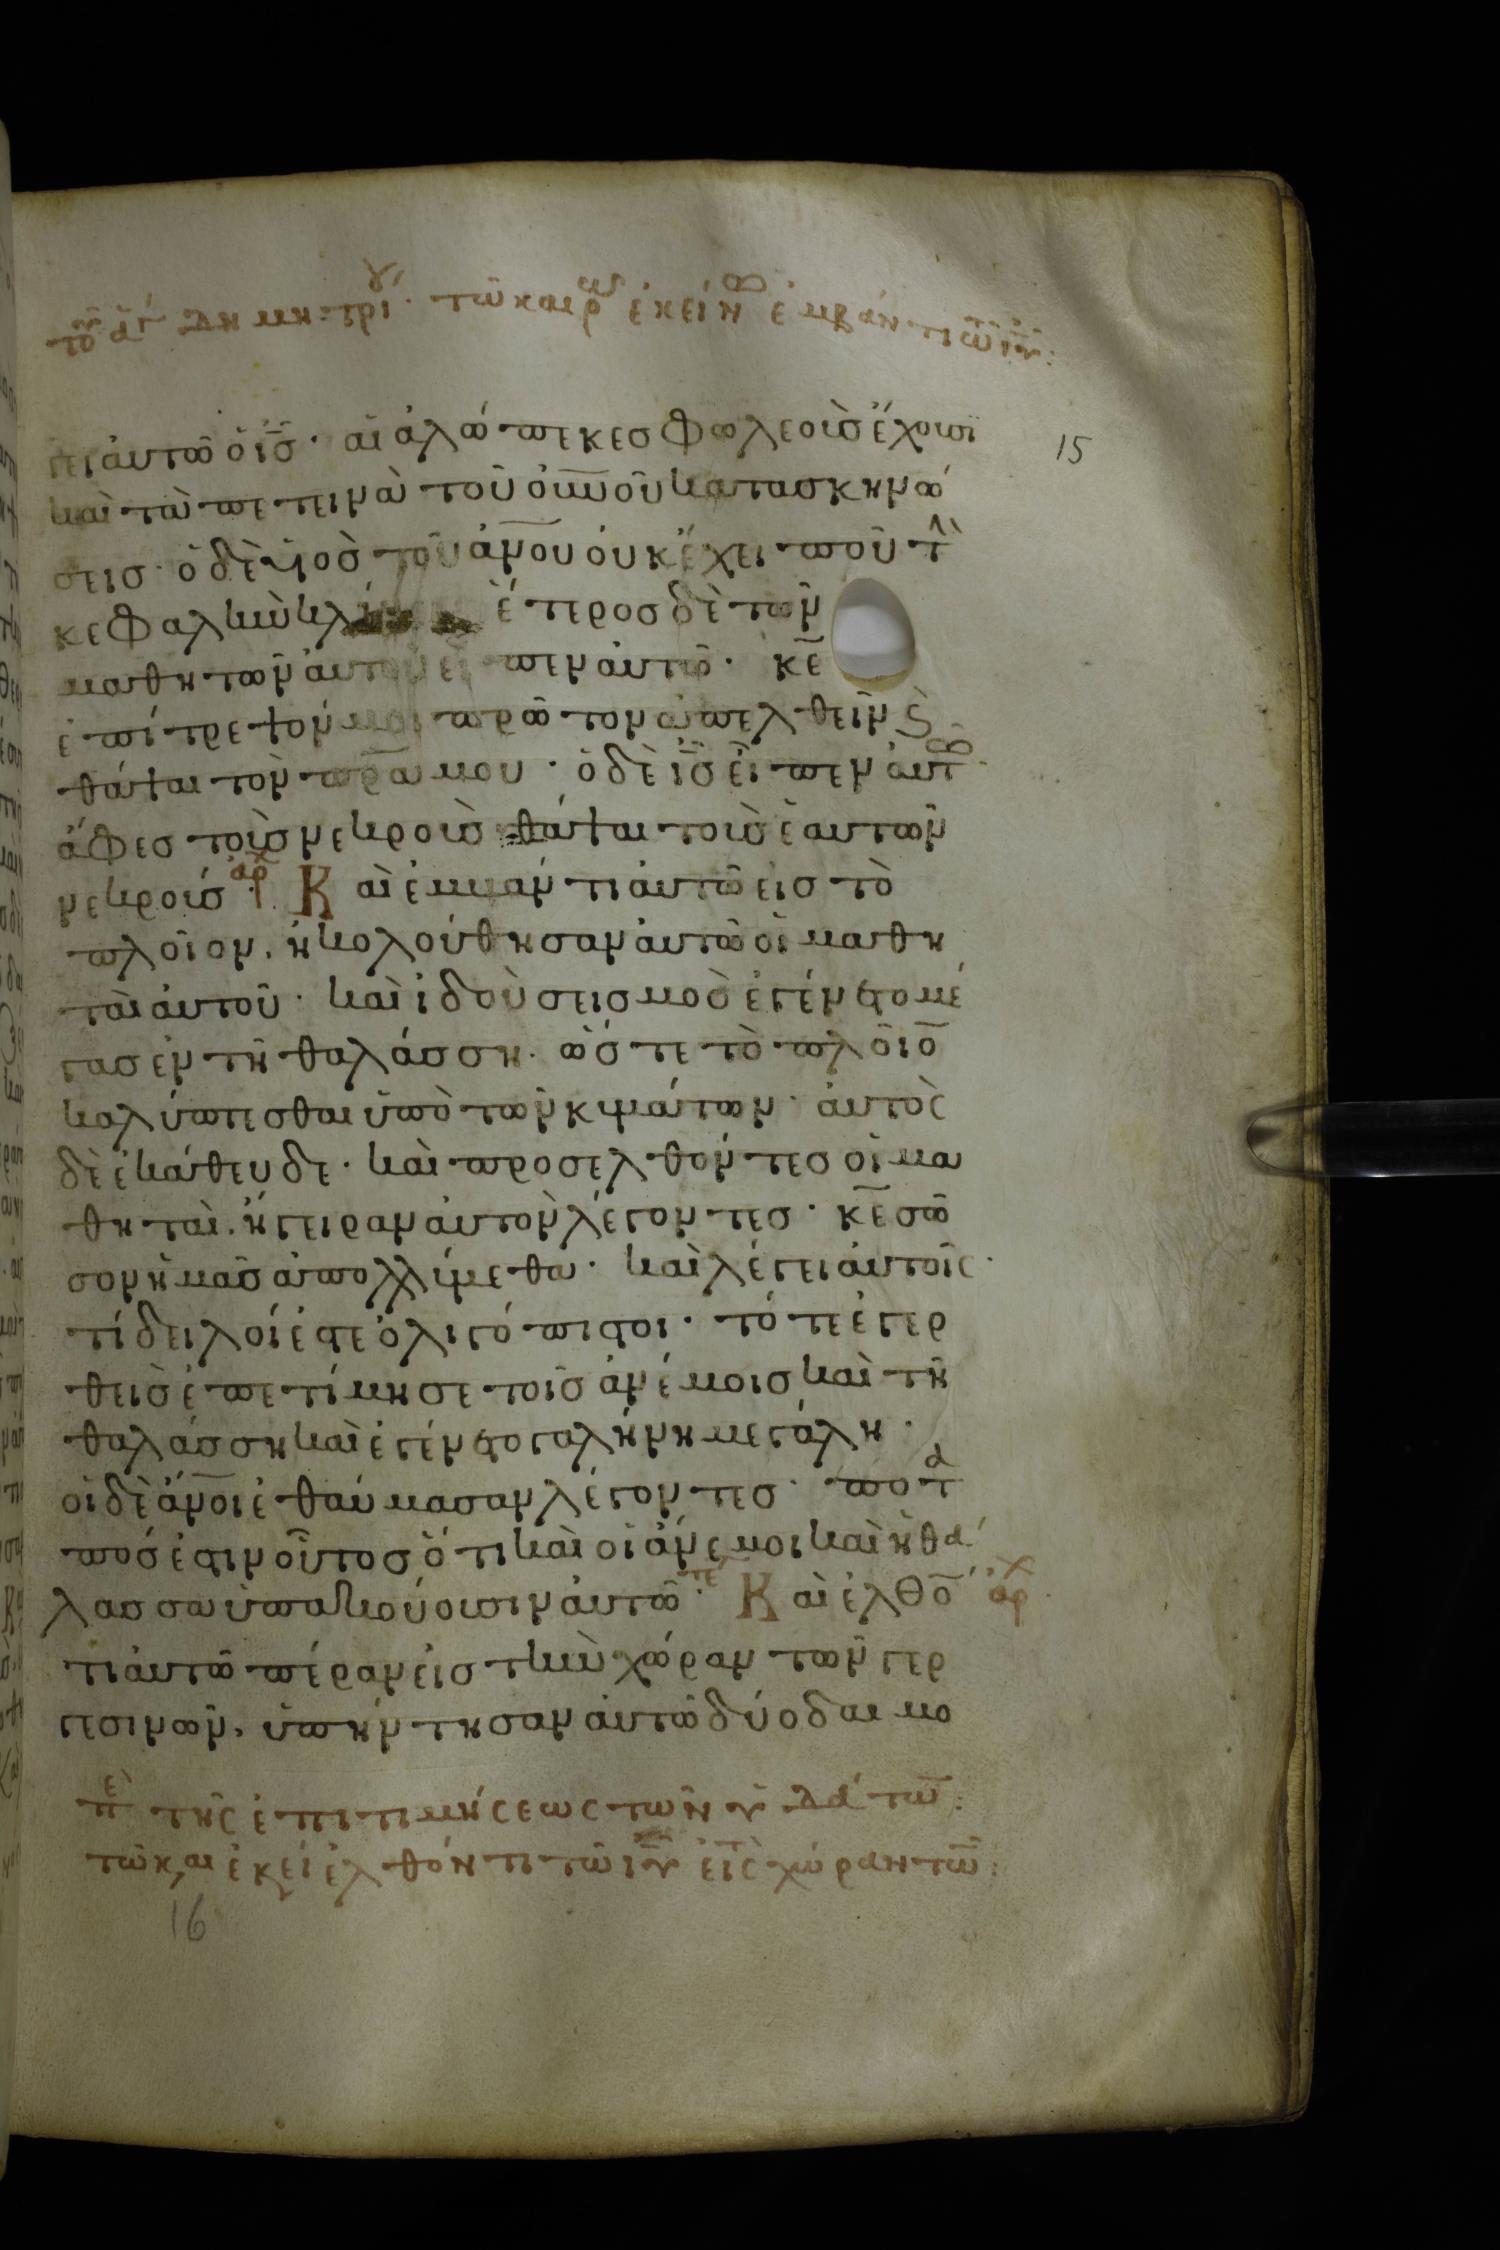 τῶ καιρ ἐκείν ἐμβάντι τῶ ιυ:
15
γει αυτῶ ὁ ις· αἱ ἀλώπεκες φωλεοὺς ἔχουσι
καὶ τὰ πετεινὰ τοῦ ουνοῦ κατασκηνώ
σεις· ὁ δὲ υἱὸς τοῦ ανου οὐκ ἔχει ποῦ τὴ
κεφαλὴν κλίνη ἕτερος δὲ τῶν
μαθητῶν αυτοῦ εἶπεν αυτῶ· κε
ἐπίτρεψόν μοι πρῶτον ἀπελθεῖν ϛ
θάψαι τὸν πρα μου· ὁ δὲ ις εἶπεν αυτ
ἄφες τοὺς νεκροὺς θάψαι τοὺς ἑαυτῶν
νεκρούς· αρχ Καὶ ἐμβάντι αυτῶ εἰς τὸ
πλοῖον, ἠκολούθησαν αυτῶ οἱ μαθη
ταὶ αυτοῦ· καὶ ἰδοὺ σεισμὸς ἐγένετο μέ
γας ἐν τῆ θαλάσση· ὥστε τὸ πλοῖο
καλύπτεσθαι ὑπὸ τῶν κυμάτων· αυτὸς
δὲ ἐκάθευδε· καὶ προσελθόντες οἱ μα
θηταὶ· ἤγειραν αυτὸν λέγοντες· κε σῶ
σον ἡμᾶς ἀπολλύμεθα· καὶ λέγει αυτοῖς·
τί δειλοί ἐστε ὀλιγόπιστοι· τότε ἐγερ
θεὶς ἐπετίμησε τοῖς ἀνέμοις καὶ τῆ
θαλάσση καὶ ἐγένετο γαλήνη μεγάλη·
οἱ δὲ ανοι ἐθαύμασαν λέγοντες· ποτα
πός ἐστιν οὗτος ὅτι καὶ οἱ ἄνεμοι καὶ ἡ θά
λασσα ὑπακούουσιν αυτῶ· τε Καὶ ἐλθό αρχ
τι αυτῶ πέραν εἰς τὴν χώραν τῶν γερ
γεσινῶν, ὑπήντησαν αυτῶ δύο δαιμο
τῆς ἐπιτιμήσεως τῶν ὑδάτω:
τῶ και ἐκεί ἐλθόντι τῶ ιυ εἰς χώραν τῶ:
16